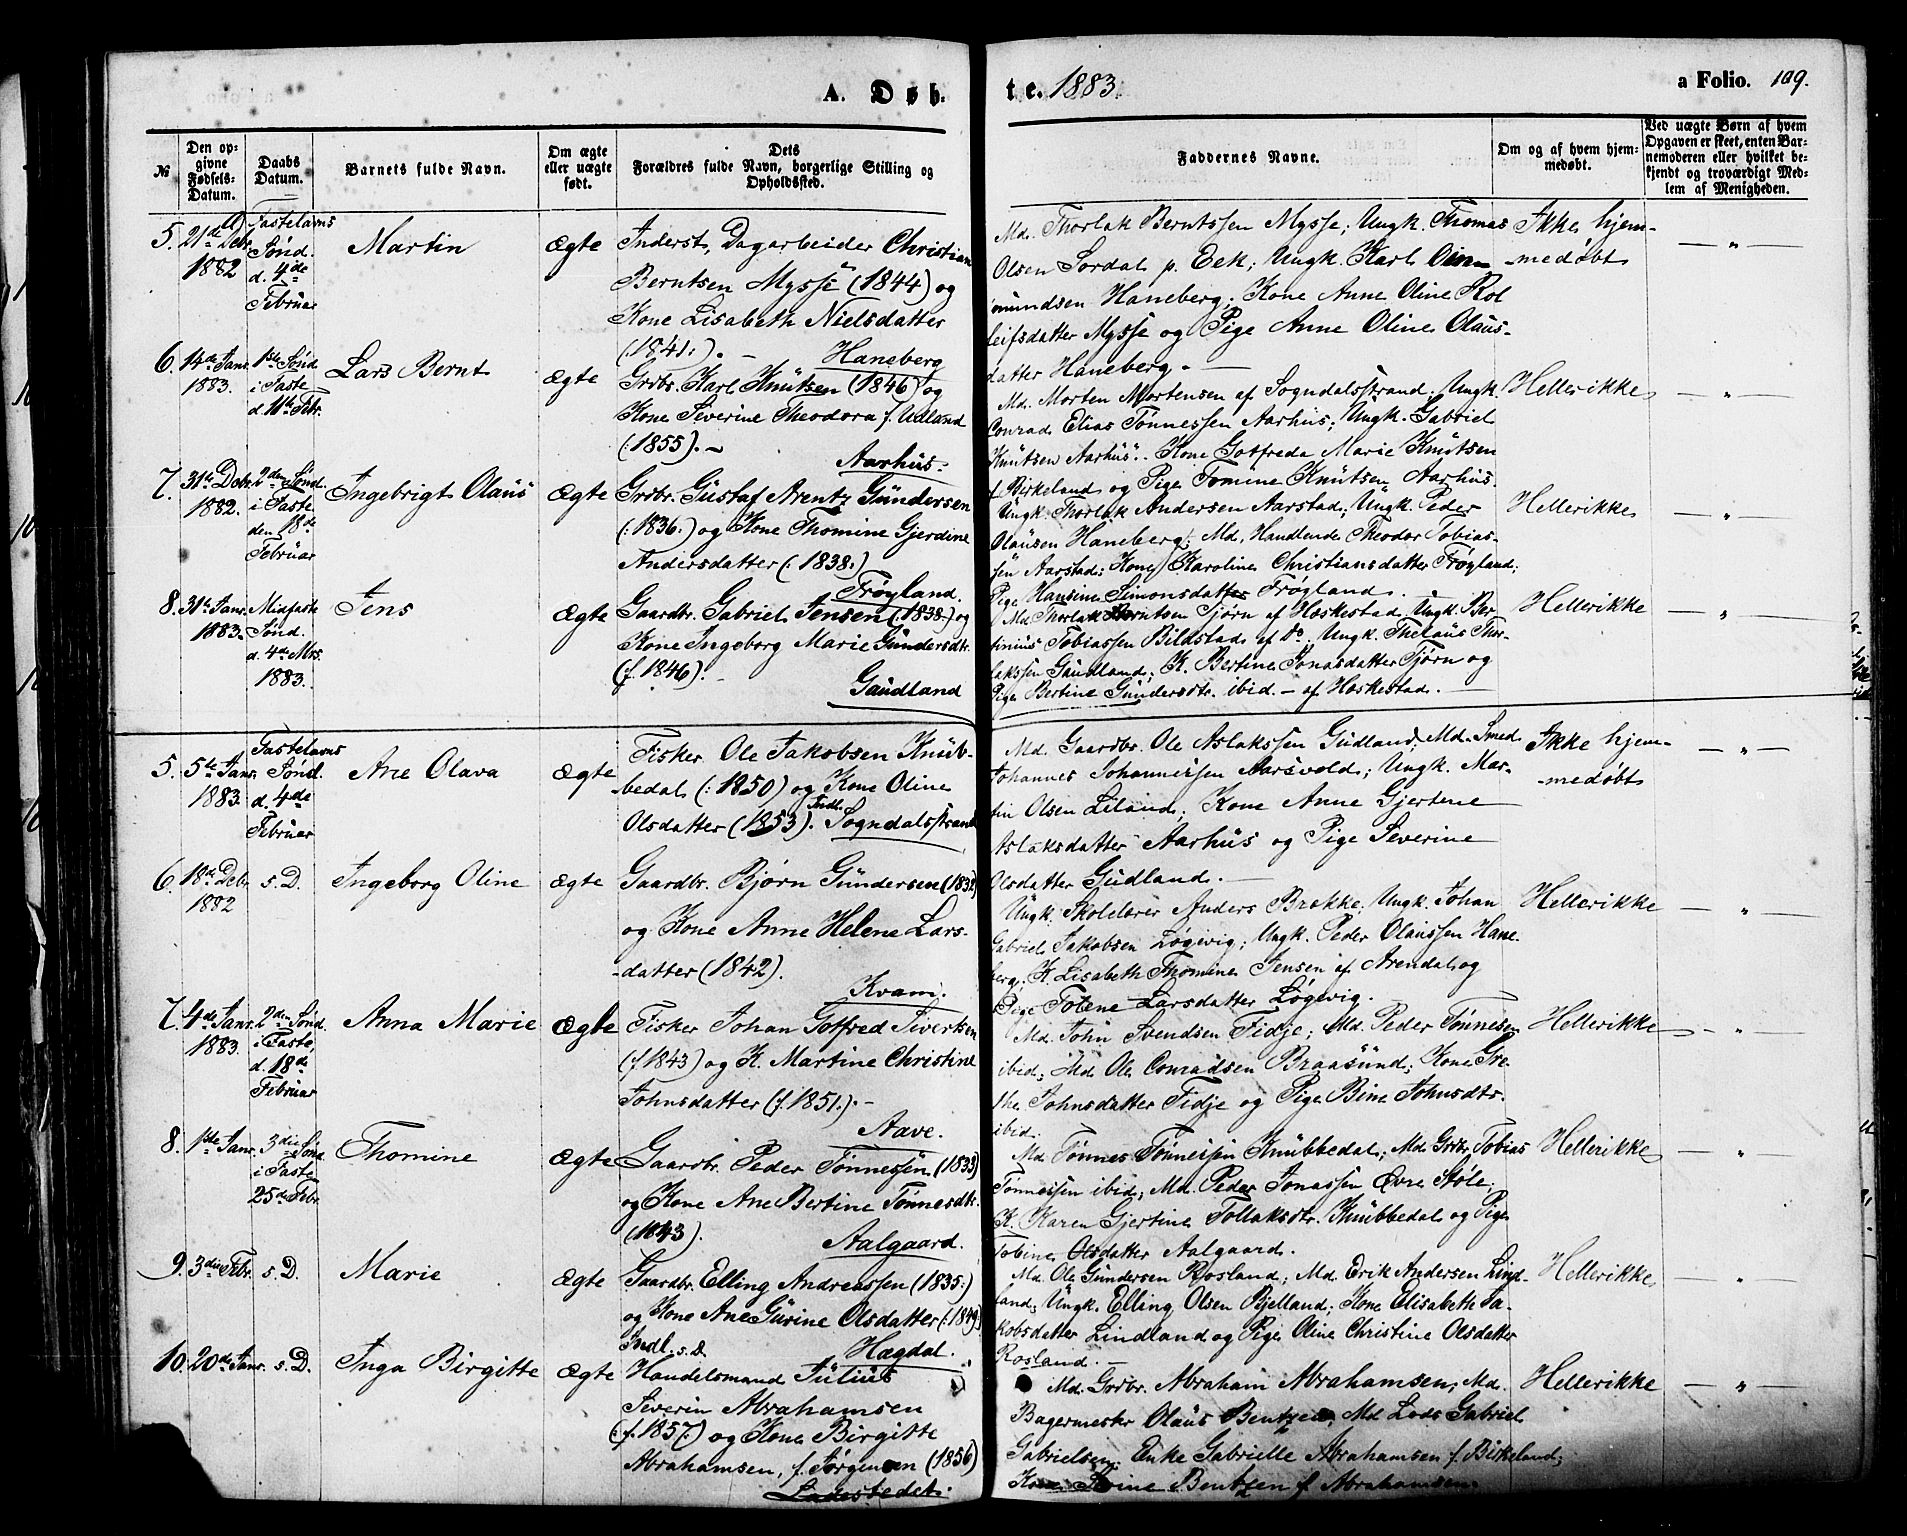 A. Døb
te. 1883. a Folio. 109.
№
Den op-
givne
Fødsels-
Datum.
Daabs
Datum.
Barnets fulde Navn.
Om ægte
eller uægte
født.
Dets
Forældres fulde Navn, borgerlige Stilling og
Opholdssted.
Faddernes Navne.
Om og af hvem hjem-
medøbt.
Ved uægte Børn af hvem
Opgaven er skeet, enten Bar-
nemoderen eller hvilket be-
kjendt og troværdigt Med-
lem af Menigheden.
5. 21de Debr.
1882
Fastelavns
Sønd.
d. 4de
Februar
Martin
Ægte
Inderst, Dagarbeider Christian
Berntsen Mysse (1844) og
Kone Lisabeth Nielsdatter
(:1841:). — Haneberg
Md. Thorlak Berntssen Mysse; Ungk. Thomas
Olsen Sordal p. Eek; Ungk. Karl
mundsen Haneberg; Kone Anne Oline Rol
leifsdatter Mysse og Pige Anne Oline Olaus-
datter Haneberg. —
Ikke hjem-
medøbt
— " —
6. 14de Janr.
1883.
1ste Sønd
i Faste
d. 11te Febr.
Lars Bernt
Ægte
Grbr. Karl Knutsen (1846) og
Kone Severine Theodora f. Udland
(:1855). —
Aarhus.
Md. Morten Mortensen af Sogndalsstrand; Ungk.
Conrad Elias Tønnessen Aarhus; Ungk. Gabriel
Knutsen Aarhus. Kone Gotfreda Marie Knutsen
f. Birkeland og Pige Tomine Knutsen Aarhus.
Hellerikke
— " —
7. 31te Debr.
1882.
2den Sønd.
i Faste
den 18de
Februar
Ingebrigt Olaus
Ægte
Grbr. Gustaf Arentz Gundersen
(:1836:) og Kone Thomine Gjerdine
Andersdatter (:1838:)
Frøyland.
Ungk. Thorlak Andersen Aarstad; Ungk. Peder
Olausen Haneberg; Md. Handlende Theodor Tobias-
sen Aarstad; Kone Karoline Christiansdatter Frøyland;
Pige Hansine Simonsdatter Frøyland.
Hellerikke
— " —
8. 31te Janr.
1883.
Midfaste
Sønd.
d. 4de Mrs.
1883.
Jens
Ægte
Gaardbr. Gabriel Jensen (:1838:) og
Kone Ingeborg Marie Gundersdtr.
(f. 1846). —
Gaudland
Md. Thorlak Berntsen Tjørn af Heskestad, Ungk. Ber-
tinius Tobiassen Bilstad af Do. Ungk. Thelaus Thor-
lakssen Gaudland; K. Bertine Jonasdatter Tjørn og
Pige Bertine Gundersdtr. ibid. — af Heskestad. —
Hellerikke
— " —
5. 5te Janr.
1883.
Fastelavns
Sønd.
d. 4de
Februar
Ane Olava
Ægte
Fisker Ole Jakobsen Knub-
bedal (:1850) og Kone Oline
Olsdatter (1853). Sogndalsstrand
Md. Gaardbr. Ole Aslakssen Gudland; Md. Smed
Johannes Johannessen Aarsvold; Ungk. Mar-
tin Olsen Liland; Kone Anne Gjertene
Aslaksdatter Aarhus og Pige Severine
Olsdatter Gudland. —
Ikke hjem-
medøbt
— " —
6. 18de Debr.
1882
s. D.
Ingeborg Oline
Ægte
Gaardbr. Bjørn Gundersen (1832)
og Kone Anne Helene Lars-
datter (1842).
Kvam.
Ungk. Skolelærer Anders Brække, Ungk. Johan
Gabriel Jakobsen Løgevig; Ungk. Peder Olaussen Hane-
berg; K. Lisabeth Thomine Jensen af Arendal og
Pige Tolene Larsdatter Løgevig.
Hellerikke
— " —
7. 4de Janr.
1883.
2den Sønd.
i Faste,
d. 18de
Februar
Anna Marie
Ægte
Fisker Johan Gotfred Sivertsen
(f. 1843) og K. Martine Christine
Johnsdatter (f. 1851.). —
Aave.
Md. John Svendsen Fidje; Md. Peder Tønnesen
ibid; Md. Ole Conradsen Braasund; Kone Gre-
the Johnsdatter Fidje og Pige Bine Johnsdtr.
ibid.
Hellerikke
— " —
8. 1ste Janr.
3die Sønd
i Faste
25de Febr
Thomine
Ægte
Gaardbr. Peder Tønnessen (1833)
og Kone Ane Bertine Tønnesdtr.
(1843).
Aalgaard.
Md. Tønnes Tønnessen Knubbedal; Md. Grbr. Tobias
Tønnessen ibid; Md. Peder Jonassen Øvre Støle;
K. Karen Gjertine Tollaksdtr. Knubbedal og Pige
Tobine Olsdatter Aalgaard.
Hellerikke
— " —
9. 3die Febr.
s. D.
Marie
Ægte
Gaardbr. Elling Andreassen (1835:)
og Kone Ane Gurine Olsdatter (:1849)
Hægdal.
Md. Ole Gundersen Rosland; Md. Erik Andersen Lind-
land; Ungk. Elling Olsen Bjelland; Kone Elisabeth Ja-
kobsdatter Lindland og Pige Oline Christine Olsdatter
Rosland. —
Hellerikke
— " —
10. 20de Janr.
s. D.
Inga Birgitte
Ægte
Handelsmand Julius
Severin Abrahamsen
(:f. 1857:) og Kone Birgitte
Abrahamsen, f. Jørgensen (1856)
Ladestedet.
Md. Grbr. Abraham Abrahamsen; Md.
Bagermester Olaus Bentzen, Md Lods Gabriel
Gabrielsen; Enke Gabrielle Abrahamsen f. Birkeland;
Kone Stine Bentzen f. Abrahamsen.
Hellerikke
— " —